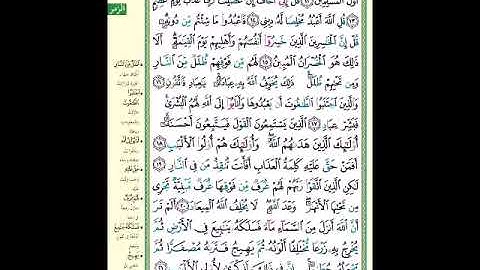 أَوَّلَ ٱلْمُسْلِمِينَ ١٢ قُلْ إِنِّىٓ أَخَافُ إِنْ عَصَيْتُ رَبِّى عَذَابَ يَوْمٍ عَظِيمٍ
١٣ قُلِ ٱللَّهَ أَعْبُدُ مُخْلِصًا لَّهُۥ دِينِى ١٤ فَٱعْبُدُوا۟ مَا شِئْتُم مِّن دُونِهِۦ
قُلْ إِنَّ ٱلْخَٰسِرِينَ ٱلَّذِينَ خَسِرُوٓا۟ أَنفُسَهُمْ وَأَهْلِيهِمْ يَوْمَ ٱلْقِيَٰمَةِ
ذَٰلِكَ هُوَ ٱلْخُسْرَانُ ٱلْمُبِينُ ١٥ لَهُم مِّن فَوْقِهِمْ ظُلَلٌ مِّنَ ٱلنَّارِ
وَمِن تَحْتِهِمْ ظُلَلٌ ذَٰلِكَ يُخَوِّفُ ٱللَّهُ بِهِۦ عِبَادَهُۥ يَٰعِبَادِ فَٱتَّقُونِ ١٦
وَٱلَّذِينَ ٱجْتَنَبُوا۟ ٱلطَّٰغُوتَ أَن يَعْبُدُوهَا وَأَنَابُوٓا۟ إِلَى ٱللَّهِ لَهُمُ ٱلْبُشْرَىٰ
فَبَشِّرْ عِبَادِ ١٧ ٱلَّذِينَ يَسْتَمِعُونَ ٱلْقَوْلَ فَيَتَّبِعُونَ أَحْسَنَهُۥٓ
أُو۟لَٰٓئِكَ ٱلَّذِينَ هَدَىٰهُمُ ٱللَّهُ وَأُو۟لَٰٓئِكَ هُمْ أُو۟لُوا۟ ٱلْأَلْبَٰبِ ١٨
أَفَمَنْ حَقَّ عَلَيْهِ كَلِمَةُ ٱلْعَذَابِ أَفَأَنتَ تُنقِذُ مَن فِى ٱلنَّارِ ١٩
لَٰكِنِ ٱلَّذِينَ ٱتَّقَوْا۟ رَبَّهُمْ لَهُمْ غُرَفٌ مِّن فَوْقِهَا غُرَفٌ مَّبْنِيَّةٌ تَجْرِى
مِن تَحْتِهَا ٱلْأَنْهَٰرُ وَعْدَ ٱللَّهِ لَا يُخْلِفُ ٱللَّهُ ٱلْمِيعَادَ ٢٠ أَلَمْ تَرَ
أَنَّ ٱللَّهَ أَنزَلَ مِنَ ٱلسَّمَآءِ مَآءً فَسَلَكَهُۥ يَنَٰبِيعَ فِى ٱلْأَرْضِ ثُمَّ
يُخْرِجُ بِهِۦ زَرْعًا مُّخْتَلِفًا أَلْوَٰنُهُۥ ثُمَّ يَهِيجُ فَتَرَىٰهُ مُصْفَرًّا ثُمَّ
يَجْعَلُهُۥ حُطَٰمًا إِنَّ فِى ذَٰلِكَ لَذِكْرَىٰ لِأُو۟لِى ٱلْأَلْبَٰبِ ٢١